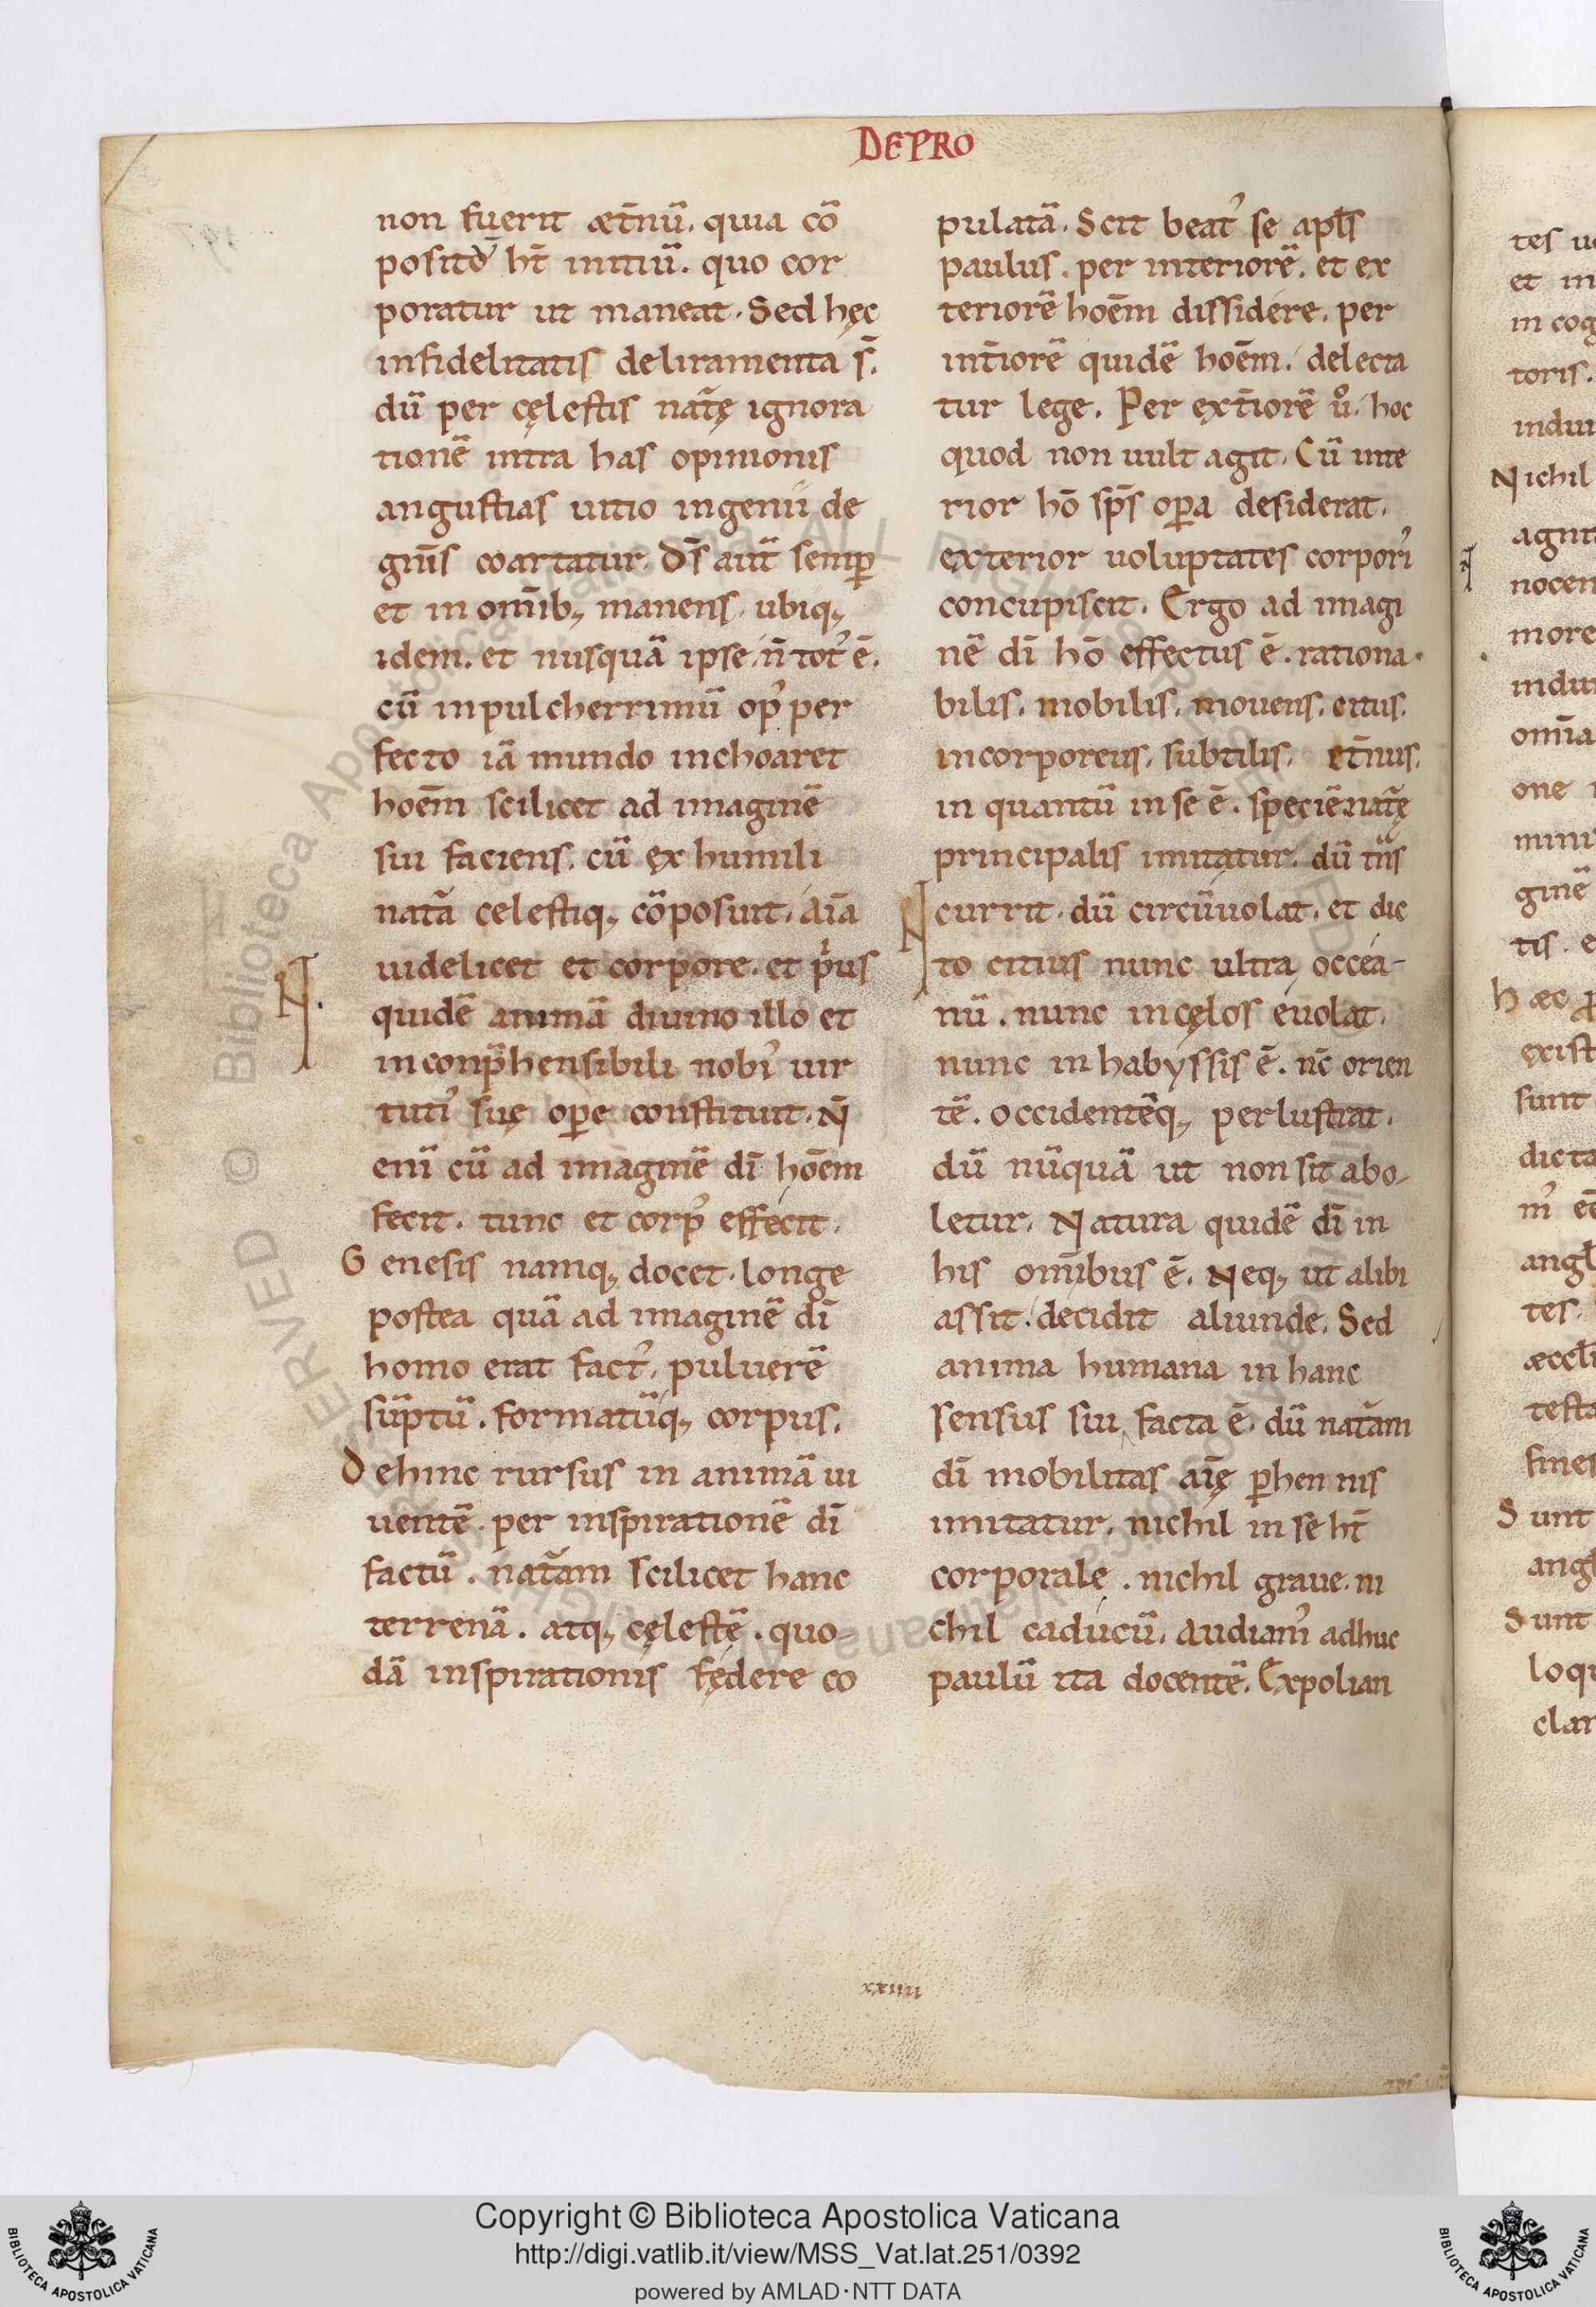 DE PRO
non fuerit æt̄nū. quia cō
positō ht̄ initiū. quo cor
poratur ut maneat. Sed hęc
infidelitatis deliramenta s̄.
dū per cęlestis nat̄ę ignora
tionē intra has opinionis
angustias uitio ingenii de
gn̄is coartatur. Ds̄ aut̄ semꝑ
et in om̄ib; manens. ubiq;
idem. et nusquā ipse n̄ tot᾽ ē.
cū in pulcherrimū op᾽ per
fecto iā mundo inchoaret
hoēm scilicet ad imaginē
sui faciens. cū ex humili
nat̄a celestiq; cōposuit. aīa
uidelicet et corpore. et pⁱus
quidē animā diuino illo et
inconp̄hensibili nobi᾽ uir
tuti᾽ suę oꝑe constituit. N̄
enī cū ad imaginē dī hōem
fecit. tunc et corp᾽ effecit.
Genesis namq; docet. longe
postea quā ad imaginē dī
homo erat fact᾽. puluerē
sūptū. formatūq; corpus.
Dehinc rursus in animā ui
uentē. per inspirationē dī
factū. nat̄am scilicet hanc
terrenā. atq; cęlestē. quo-
dā inspirationis fędere co
pulatā. Scit beat᾽ se apl̄s
paulus. per interiorē. et ex
teriorē hoēm dissidere. per
int̄iorē quidē hoēm. delecta
tur lege. Per ext̄iorē u᷎. hoc
quod non uult agit. Cū inte
rior hō sp̄s oꝑa desiderat.
exterior uoluptates corpori᾽
concupiscit. Ergo ad imagi
nē dī hō effectus ē. rationa
bilis. mobilis. mouens. citus.
incorporeus. subtilis. et̄nus.
in quantū in se ē. speciē nat̄ę
principalis imitatur. dū tn̄s
currit. dū circūuolat. et dic
to citius nunc ultra occea-
nū. nunc in cęlos euolat.
nunc in habyssis ē. nc̄ orien
tē. occidentēq; perlustrat.
dū nūquā ut non sit abo-
letur. Natura quidē dī in
his om̄ibus ē. Neq; ut alibi
assit. decidit aliunde. Sed
anima humana in hanc
sensus sui facta ē. dū nat̄am
dī mobilitas aīę ꝑhennis
imitatur. nichil in se ht̄
corporale. nichil graue. ni
chil caducū. Audiam᾽ adhuc
paulū ita docentē. Expolian
xxiiii
tes ue
et in
in cog
toris.
indui
Nichil
agnit
nocen
more
indui
om̄ia
one
minu
ginē
tis. e
hæc
exist
sunt
dicta
angl̄
tes.
æccl̄i
testa
fines
Sunt
angl̄
Sunt
loqu
clar
Copyright © Biblioteca Apostolica Vaticana
http://digi.vatlib.it/view/MSS_Vat.lat.251/0392
powered by AMLAD·NTT DATA
BIBLIOTECA APOSTOLICA VATICANA
BIBLIOTECA APOSTOLICA VATICANA